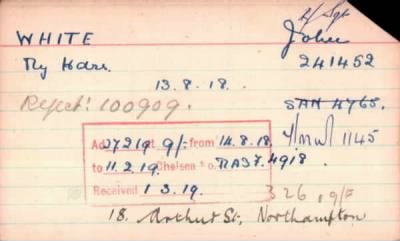 A/Sgt
WHITE John
241452
13.8.18.
Reject: 100909.
SAN 4765.
1145
Ad 27219 9/- from 14.8.18
to 11.2.19 Chelsea to RA37.4918.
Received 1 3.19.
326, 9/F
18. Arthur St, Northampton